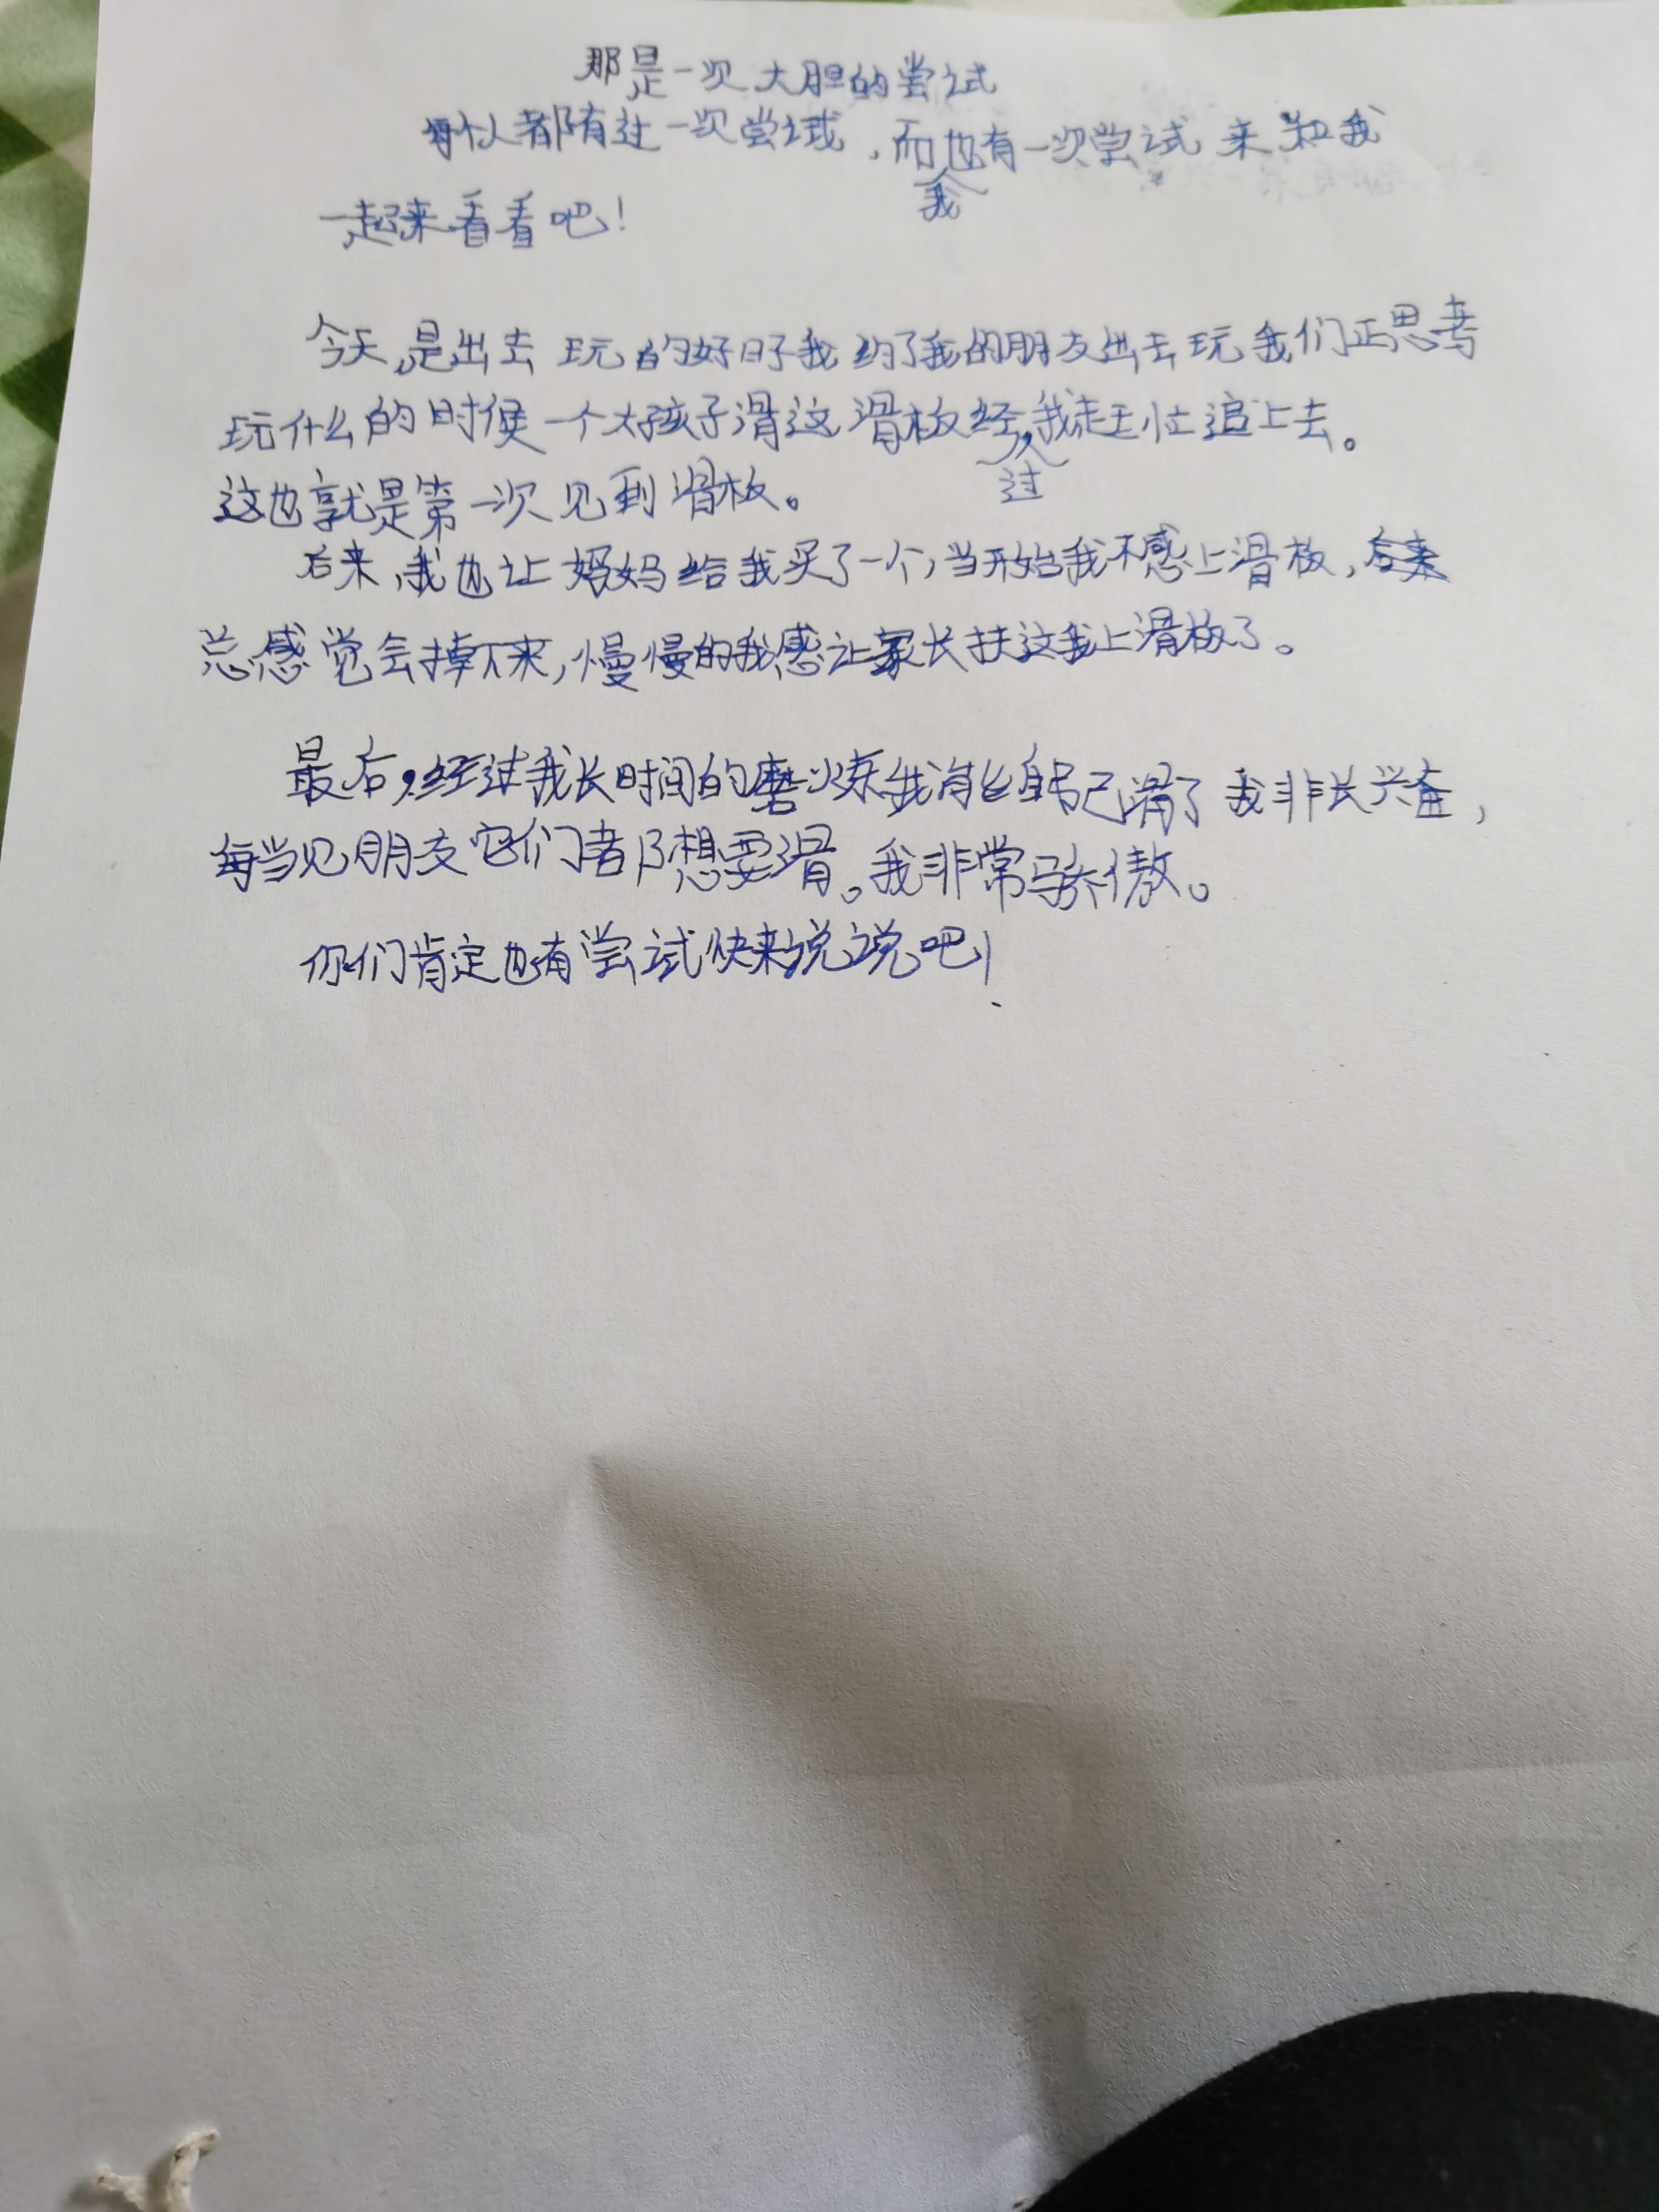 那是一次大胆的尝试
每个人都有过一次尝试,而我也有一次尝试 来和我
一起来看看吧!
今天,是出去玩的好日子我约了我的朋友出去玩我们正思考
玩什么的时候一个大孩子滑这滑板经过,我赶忙追上去。
这也就是第一次见到滑板。
后来,我也让妈妈给我买了一个,当开始我不感上滑板,
总感觉会掉下来,慢慢的我感让家长扶这我上滑板了。
最后,经过我长时间的磨炼我能自己滑了 我非长兴奋,
每当见朋友它们都想要滑。我非常骄傲。
你们肯定也有尝试快来说说吧!